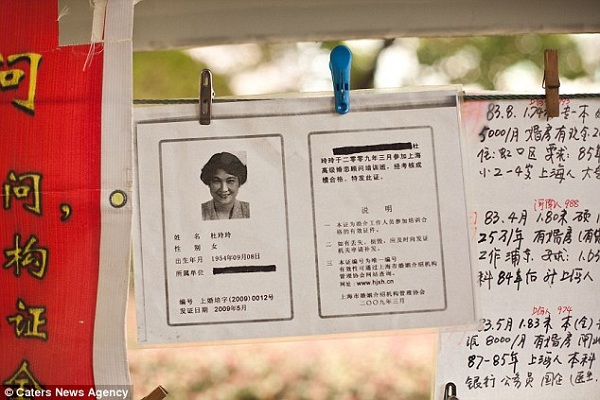 问
问,
构
证
姓 名 杜玲玲
性 别 女
出生年月 1954年09月08日
所属单位
编号 上婚培字(2009)0012号
发证日期 2009年5月
杜
玲玲于二零零九年三月参加上海
高级婚恋顾问培训班,经考核成
绩合格,特发此证。
说 明
一 本证为婚介工作人员参加培训合
格的有效证件。
二 如有丢失、损毁,应及时向发证
机关申请补发。
三 本证编号为唯一编号
有效性可通过上海市婚姻介绍机构
管理协会网站查询。
网址:www.hjsh.cn
上海市婚姻介绍机构管理协会
二〇〇九年三月
993
83.8. 1.74米 一本
5000/月 婚房有
住:虹口区 要求:85年
小2-4岁 上海人 大
988
83.4月 1.80米 硕
25万/年 有婚房(有
工作浦东
科 84年后 上海人
974
83.5月 1.83米 本(全)
收8000/月 有婚房
87-85年 上海人 本科
银行 公务员 国企(医生
© Caters News Agency